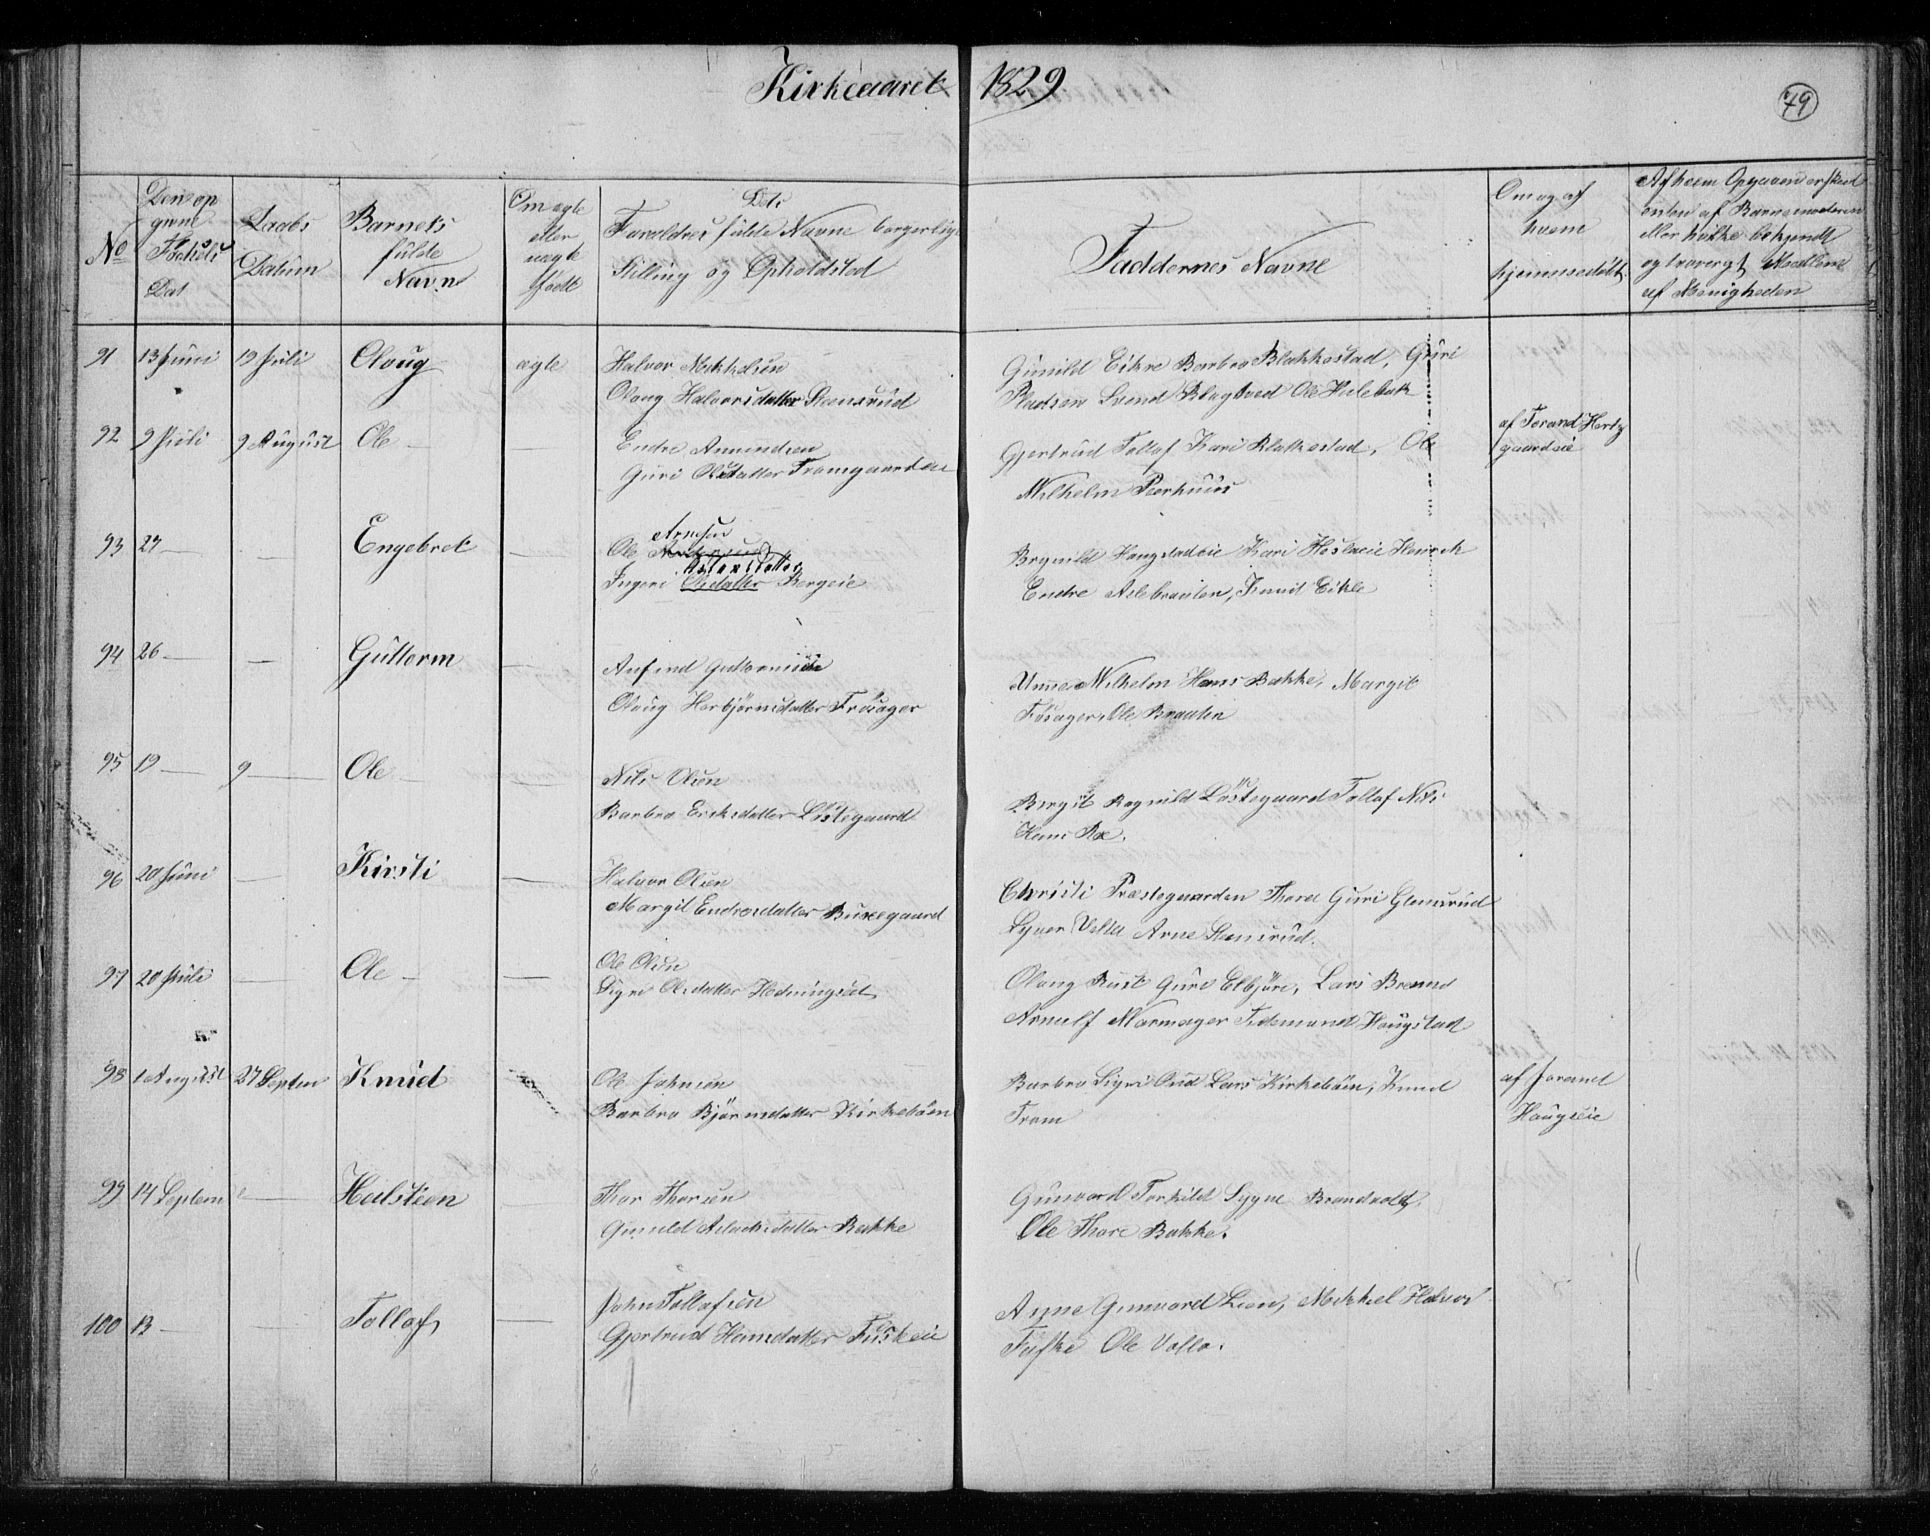 Kirkeaaret 1829
79
No
Den op
givne
Födsels
Dat
Daabs
Datum
Barnets
fulde
Navn
Om ægte
eller
uægte
födt
Dets
Forældres fulde Navne borgerlige
Stilling og Opholdsted
Faddernes Navne
Om og af
hvem
hjemmedöbt
Af hvem Opgaven er skeed
enten af Barnemoderen
eller hvilke bekjendt
og troværgt Medlem
af Menigheden
91 13 Juni 19 Juli Oloug ægte Halvor Mikkelsen
Oloug Halvorsdatter Steensrud
Gunild Eikre Barbro Blakkestad, Guri
Pladsen Svend Blagtved Ole Hulebak
92 9 Juli 9 August Ole — — Endre Amundsen
Guri Olsdatter Framgaarden
Gjertrud Tollef Kari Blakkestad, Ole
Wilhelm Peerhuus
af Jorand Hertz
gaardeie
93 27 — — Engebret — Arnesen
Ole
Aslaksdatter
Ingeri Olsdatter Bergeie
Brynild Haugstadeie Kari Hesleeie Henrik
Endre Aslebraaten, Knud Eikle
94 26 — — Guttorm — Anfind Guttormsen
Oloug Herbjörnsdatter Frösager
Unne Wilhelm Hans Bakke, Margit
Fösager, Ole Braaten
95 19 — 9 — Ole — Nils Olsen
Barbro Eriksdatter Löstegaard
Birgit Ragnild Löstegaard Tollef Nils
Hans Roe.
96 20 Juni — Kirsti — Halvor Olsen
Margit Endresdatter Bunegaard
Christi Præstegaarden Thore Guri Glensrud
Syver Vella Arne Steensrud.
97 20 Juli — Ole — — Ole Olsen
Sigri Olsdatter Hedningsæt
Oloug Rust Guri Elbjörn, Lars Brenno
Arnulf Mærmager Tidemand Haugstad
98 1 August 27 Septem Knud Ole Johnsen
Barbro Björnsdatter Kirkeböen
Barbro Sigri Oud Lars Kirkeböen, Knud
Fram
af Jorand
Haugseie
99 14 Septem — Halsteen — Thor Thorsen
Gunild Aslaksdatter Bakke
Gunvord Torkild Sygne Brandvold,
Ole Thore Bakke.
100 13 — — Tollef — John Tollefsen
Gjertrud Hansdatter Fuskeie
Anne Gunvord Lien, Mikkel Halvor
Fuske Ole Volla.